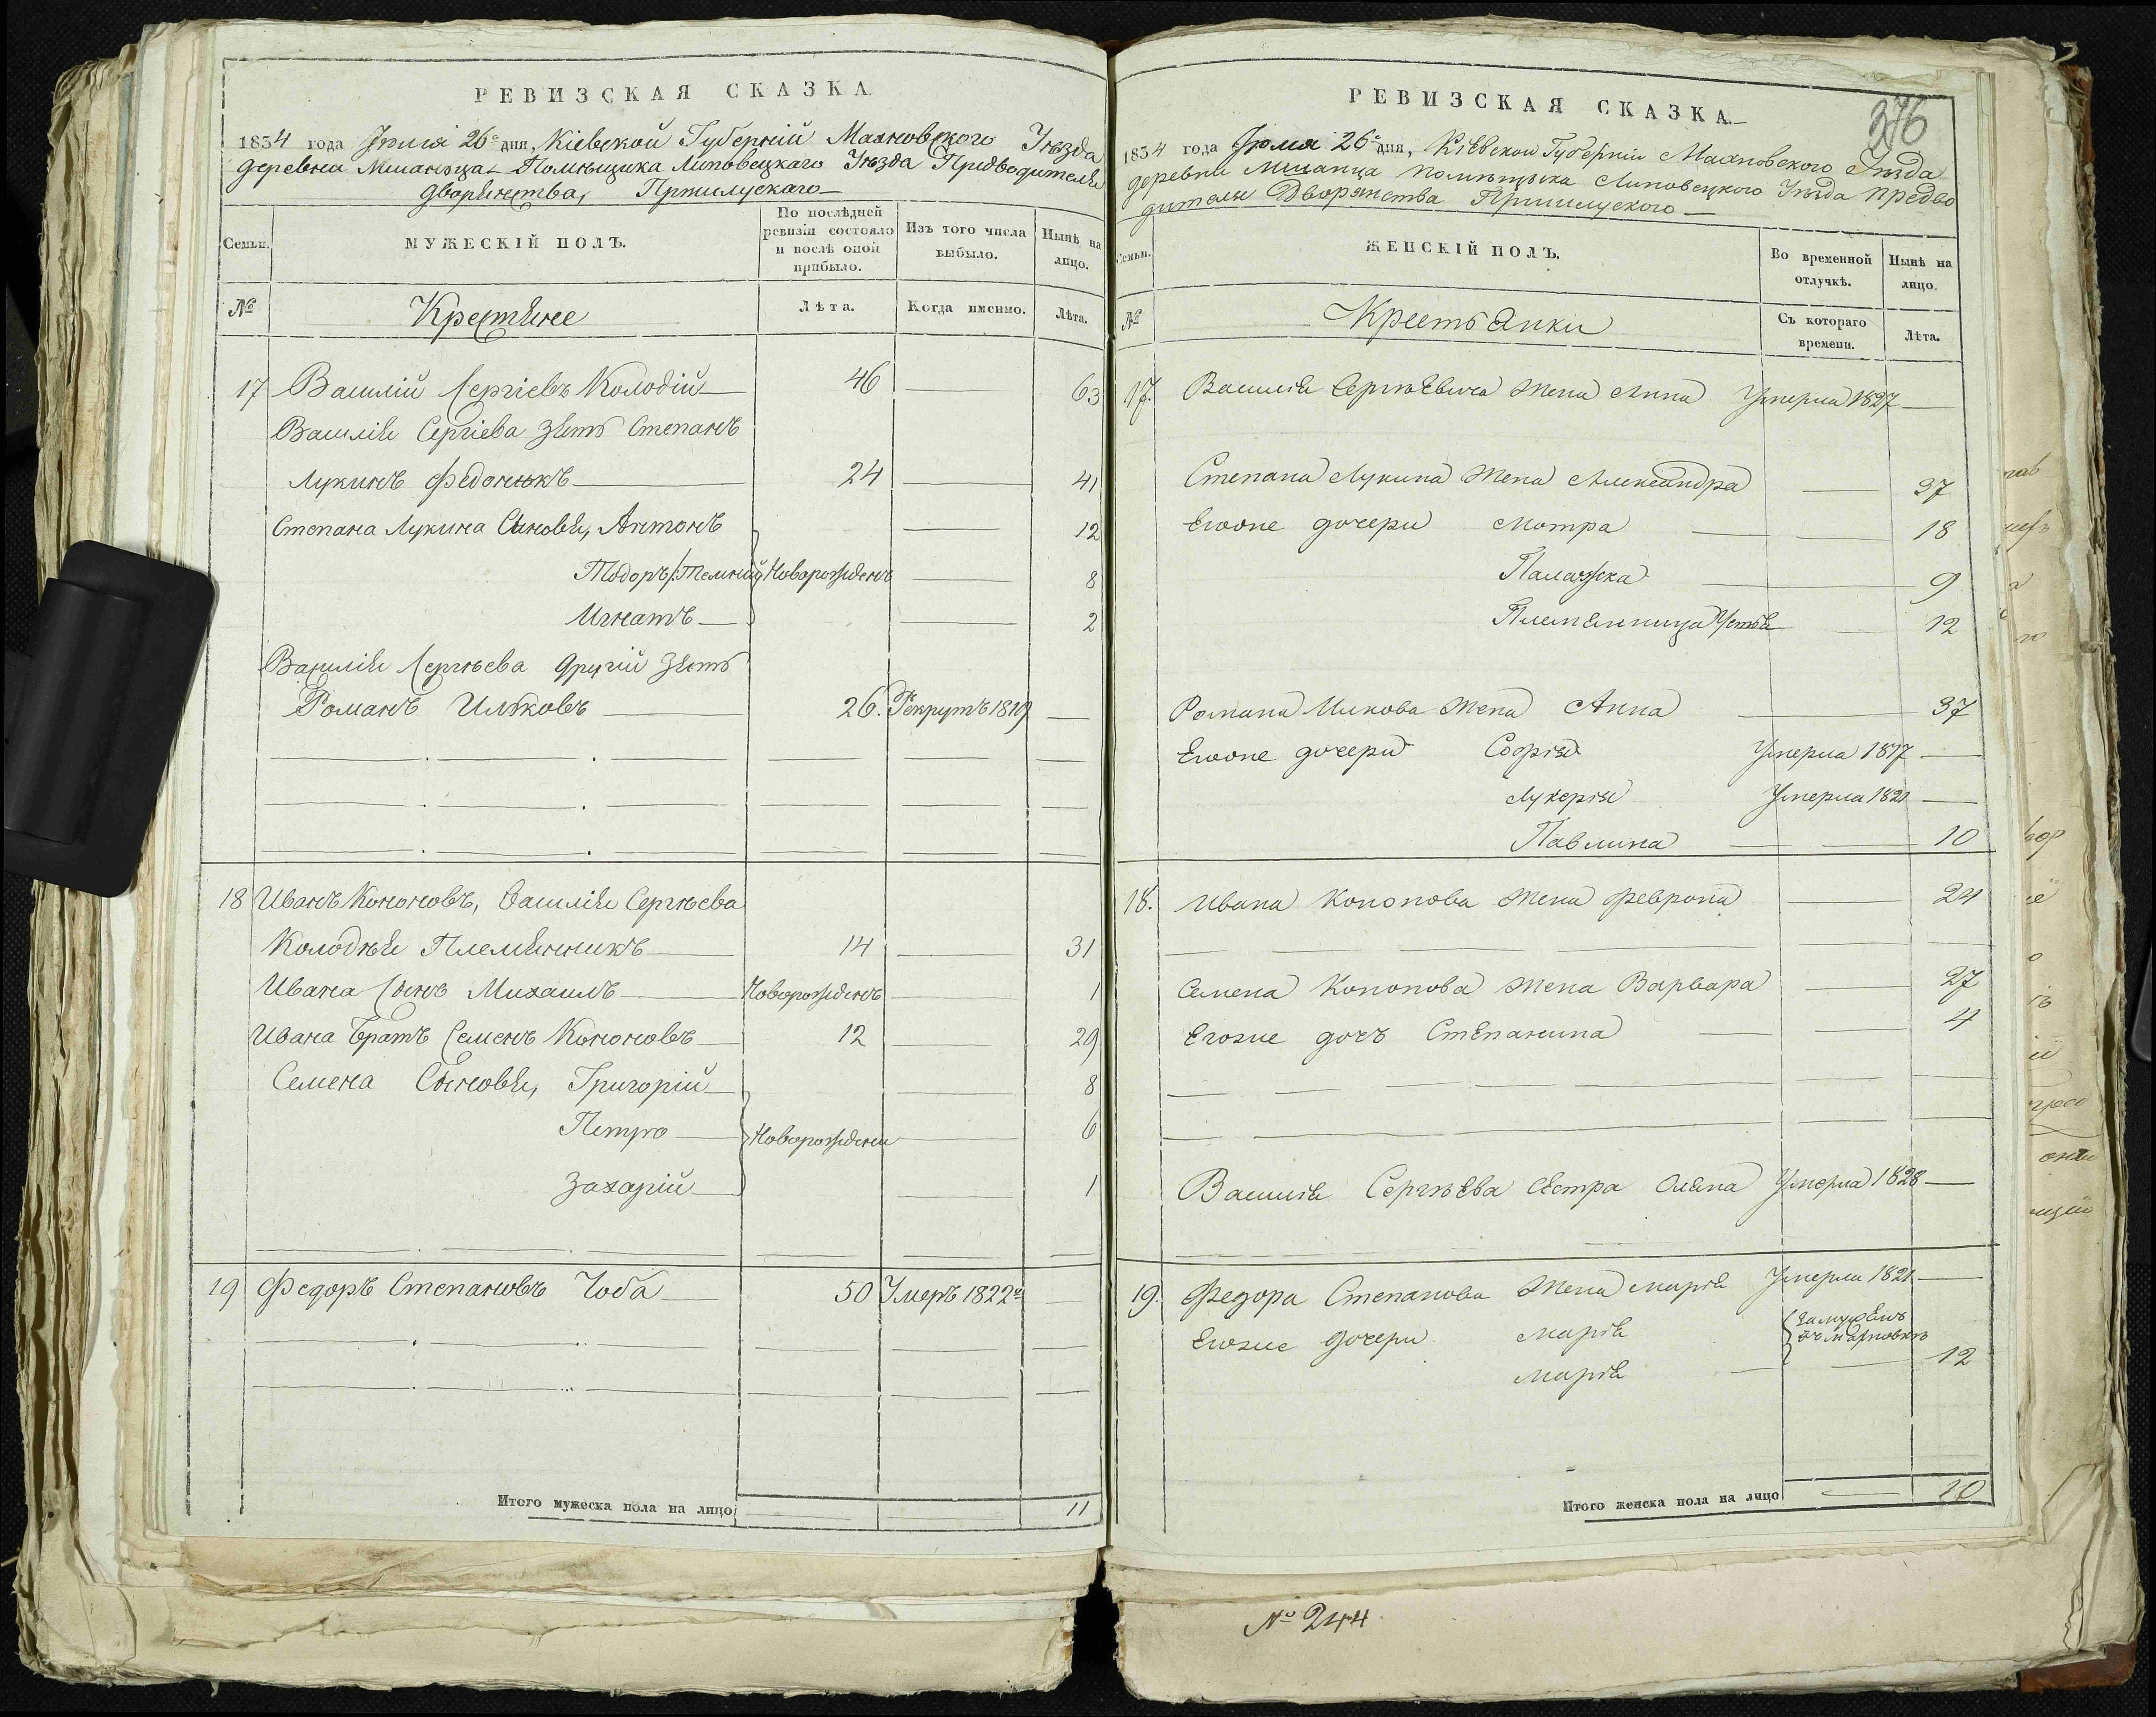 РЕВИЗСКАЯ СКАЗКА
1834 года Июля 26го дня, Кіевской Губерніи Махновского Уѣзда
деревни Мшанца Помѣщика Липовецкаго Уѣзда Предводителя
дворянства, Пржилускаго
Семьи.
МУЖЕСКІЙ ПОЛЪ.
По послѣдней ревизіи состояло и послѣ оной прибыло.
Изъ того числа выбыло.
Нынѣ на лицо.
№
Крестяне
Лѣта.
Когда именно.
Лѣта.
17 Василій Сергіевъ Колодій 46 63
Василія Сергіева зять Степанъ
Лукинъ Федонюкъ 24 41
Степана Лукина Сыновья, Антонъ 12
Тодоръ /:Темный Новорожденъ 8
Игнатъ 2
Василія Сергѣева другій зять
Романъ Ильковъ 26. Рекрутъ 1819
18 Иванъ Кононовъ, Василія Сергѣева
Колодѣя Племянникъ 14 31
Ивана Сынъ Михаилъ Новорожденъ 1
Ивана Братъ Семенъ Кононовъ 12 29
Семена Сыновья, Григорій 8
Петро Новорождени 6
Захарій 1
19 Федоръ Степановъ Чоба 50 Умеръ 1822го
Итого мужеска пола на лицо 11
РЕВИЗСКАЯ СКАЗКА
376
1834 года Июля 26го дня, Кіевской Губерніи Махновского Уѣзда
деревни Мшанца помѣщыка Липовецкого Уѣзда предво
дителя Дворянства Пржилуского
Семьи.
ЖЕНСКІЙ ПОЛЪ.
Во временной отлучкѣ.
Нынѣ на лицо.
№
Крестьянки
Съ котораго времени.
Лѣта.
17. Василія Сергѣевича жена Анна Умерла 1827
Степана Лукина жена Александра 37
Егоже дочери Мотра 18
Палажка 9
Племенница Устья 12
Романа Илкова жена Анна 37
Егоже дочери Софія Умерла 1817
Лукерія Умерла 1820
Павлина 10
18. Ивана Кононова жена феврона 24
Семена Кононова жена Варвара 27
Егоже дочъ Степанина 4
Василія Сергѣева сестра Олена Умерла 1828
19. Федора Степанова жена марія Умерла 1821
Егоже дочери марія
марія 12
Итого женска пола на лицо 10
№ 244